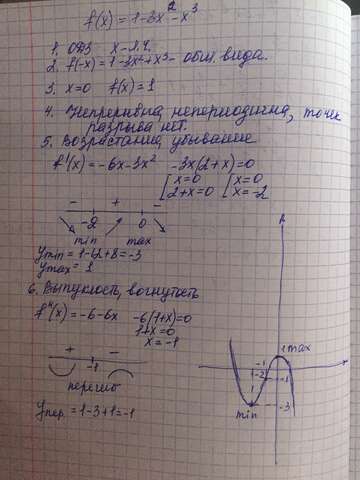 f(x) = 1-3x²-x³
1. ОДЗ x - л.ч.
2. f(-x) = 1-3x²+x³ - общ вида.
3. x=0 f(x)=1
4. Непрерывна, непериодична, точек
разрыва нет.
5. Возрастание, убывание
f'(x) = -6x-3x² -3x(2+x)=0
[x=0 [x=0
2+x=0 x=-2
- + -
-2 0
min max
y min = 1-12+8=-3
y max = 1
6. Выпуклость, вогнутость
f''(x) = -6-6x -6(1+x)=0
1+x=0
x=-1
+ -
-1
перегиб
y пер. = 1-3+1=-1
1 max
-1
-2
-1
-3
min